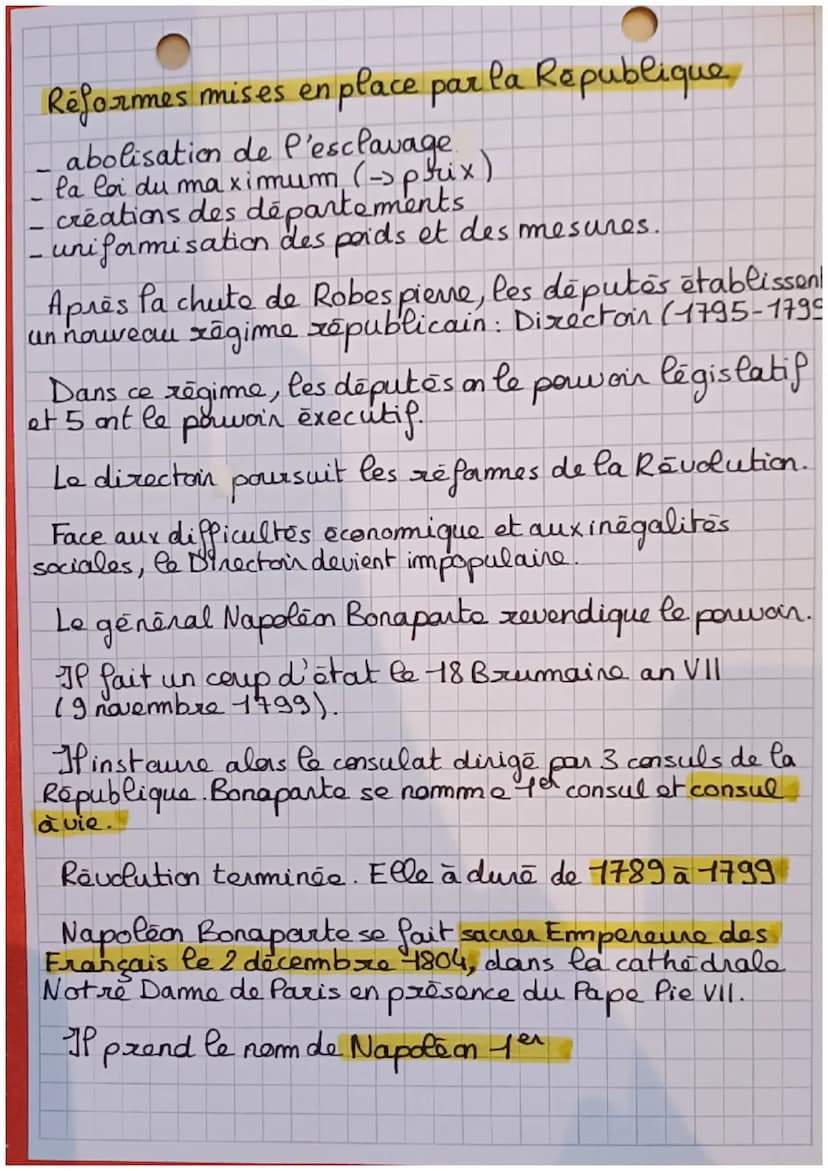 Réformes mises en place par la République
- abolisation de l'esclavage
- la loi du maximum (→ prix)
- créations des départements
- uniformisation des poids et des mesures.
Après la chute de Robespierre, les députés établissent
un nouveau régime républicain : Directoir (1795-1799
Dans ce régime, les députés on le pouvoir législatif
et 5 ont le pouvoir éxecutif.
Le directoir poursuit les réformes de la Révolution.
Face aux difficultés économique et aux inégalités
sociales, le Directoir devient impopulaire.
Le général Napoléon Bonaparte revendique le pouvoir.
Il fait un coup d'état le 18 Brumaire an VII
(9 novembre 1799).
Il instaure alors le consulat dirigé par 3 consuls de la
République. Bonaparte se nomme 1er consul et consul
à vie.
Révolution terminée. Elle à duré de 1789 à 1799
Napoléon Bonaparte se fait sacrer Empereure des
Français le 2 décembre 1804, dans la cathédrale
Notre Dame de Paris en présence du Pape Pie VII.
Il prend le nom de Napoléon 1er